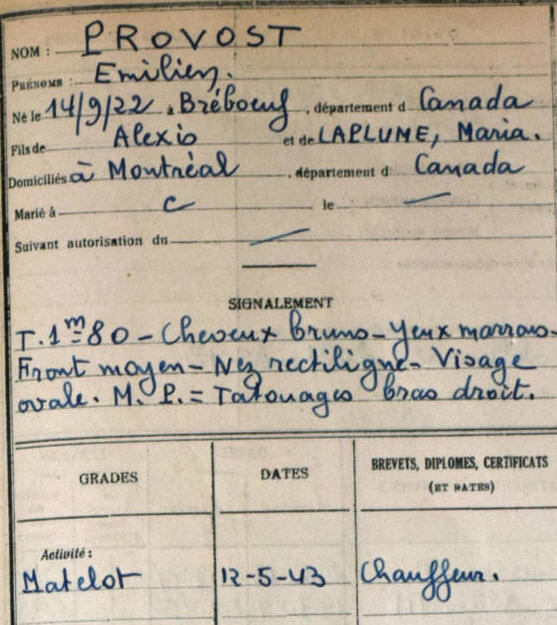 NOM : PROVOST
PRÉNOMS : Emilien.
Né le 14/9/22 à Bréboeuf, département d Canada
Fils de Alexis et de LAPLUME, Maria.
Domiciliés à Montréal, département d Canada
Marié à C le —
Suivant autorisation du —
SIGNALEMENT
T. 1m80 - Cheveux bruns - Yeux marrons -
Front moyen - Nez rectiligne - Visage
ovale. M. P. = Tatouages bras droit.
GRADES DATES BREVETS, DIPLOMES, CERTIFICATS
(ET DATES)
Activité :
Matelot 12-5-43 Chauffeur.